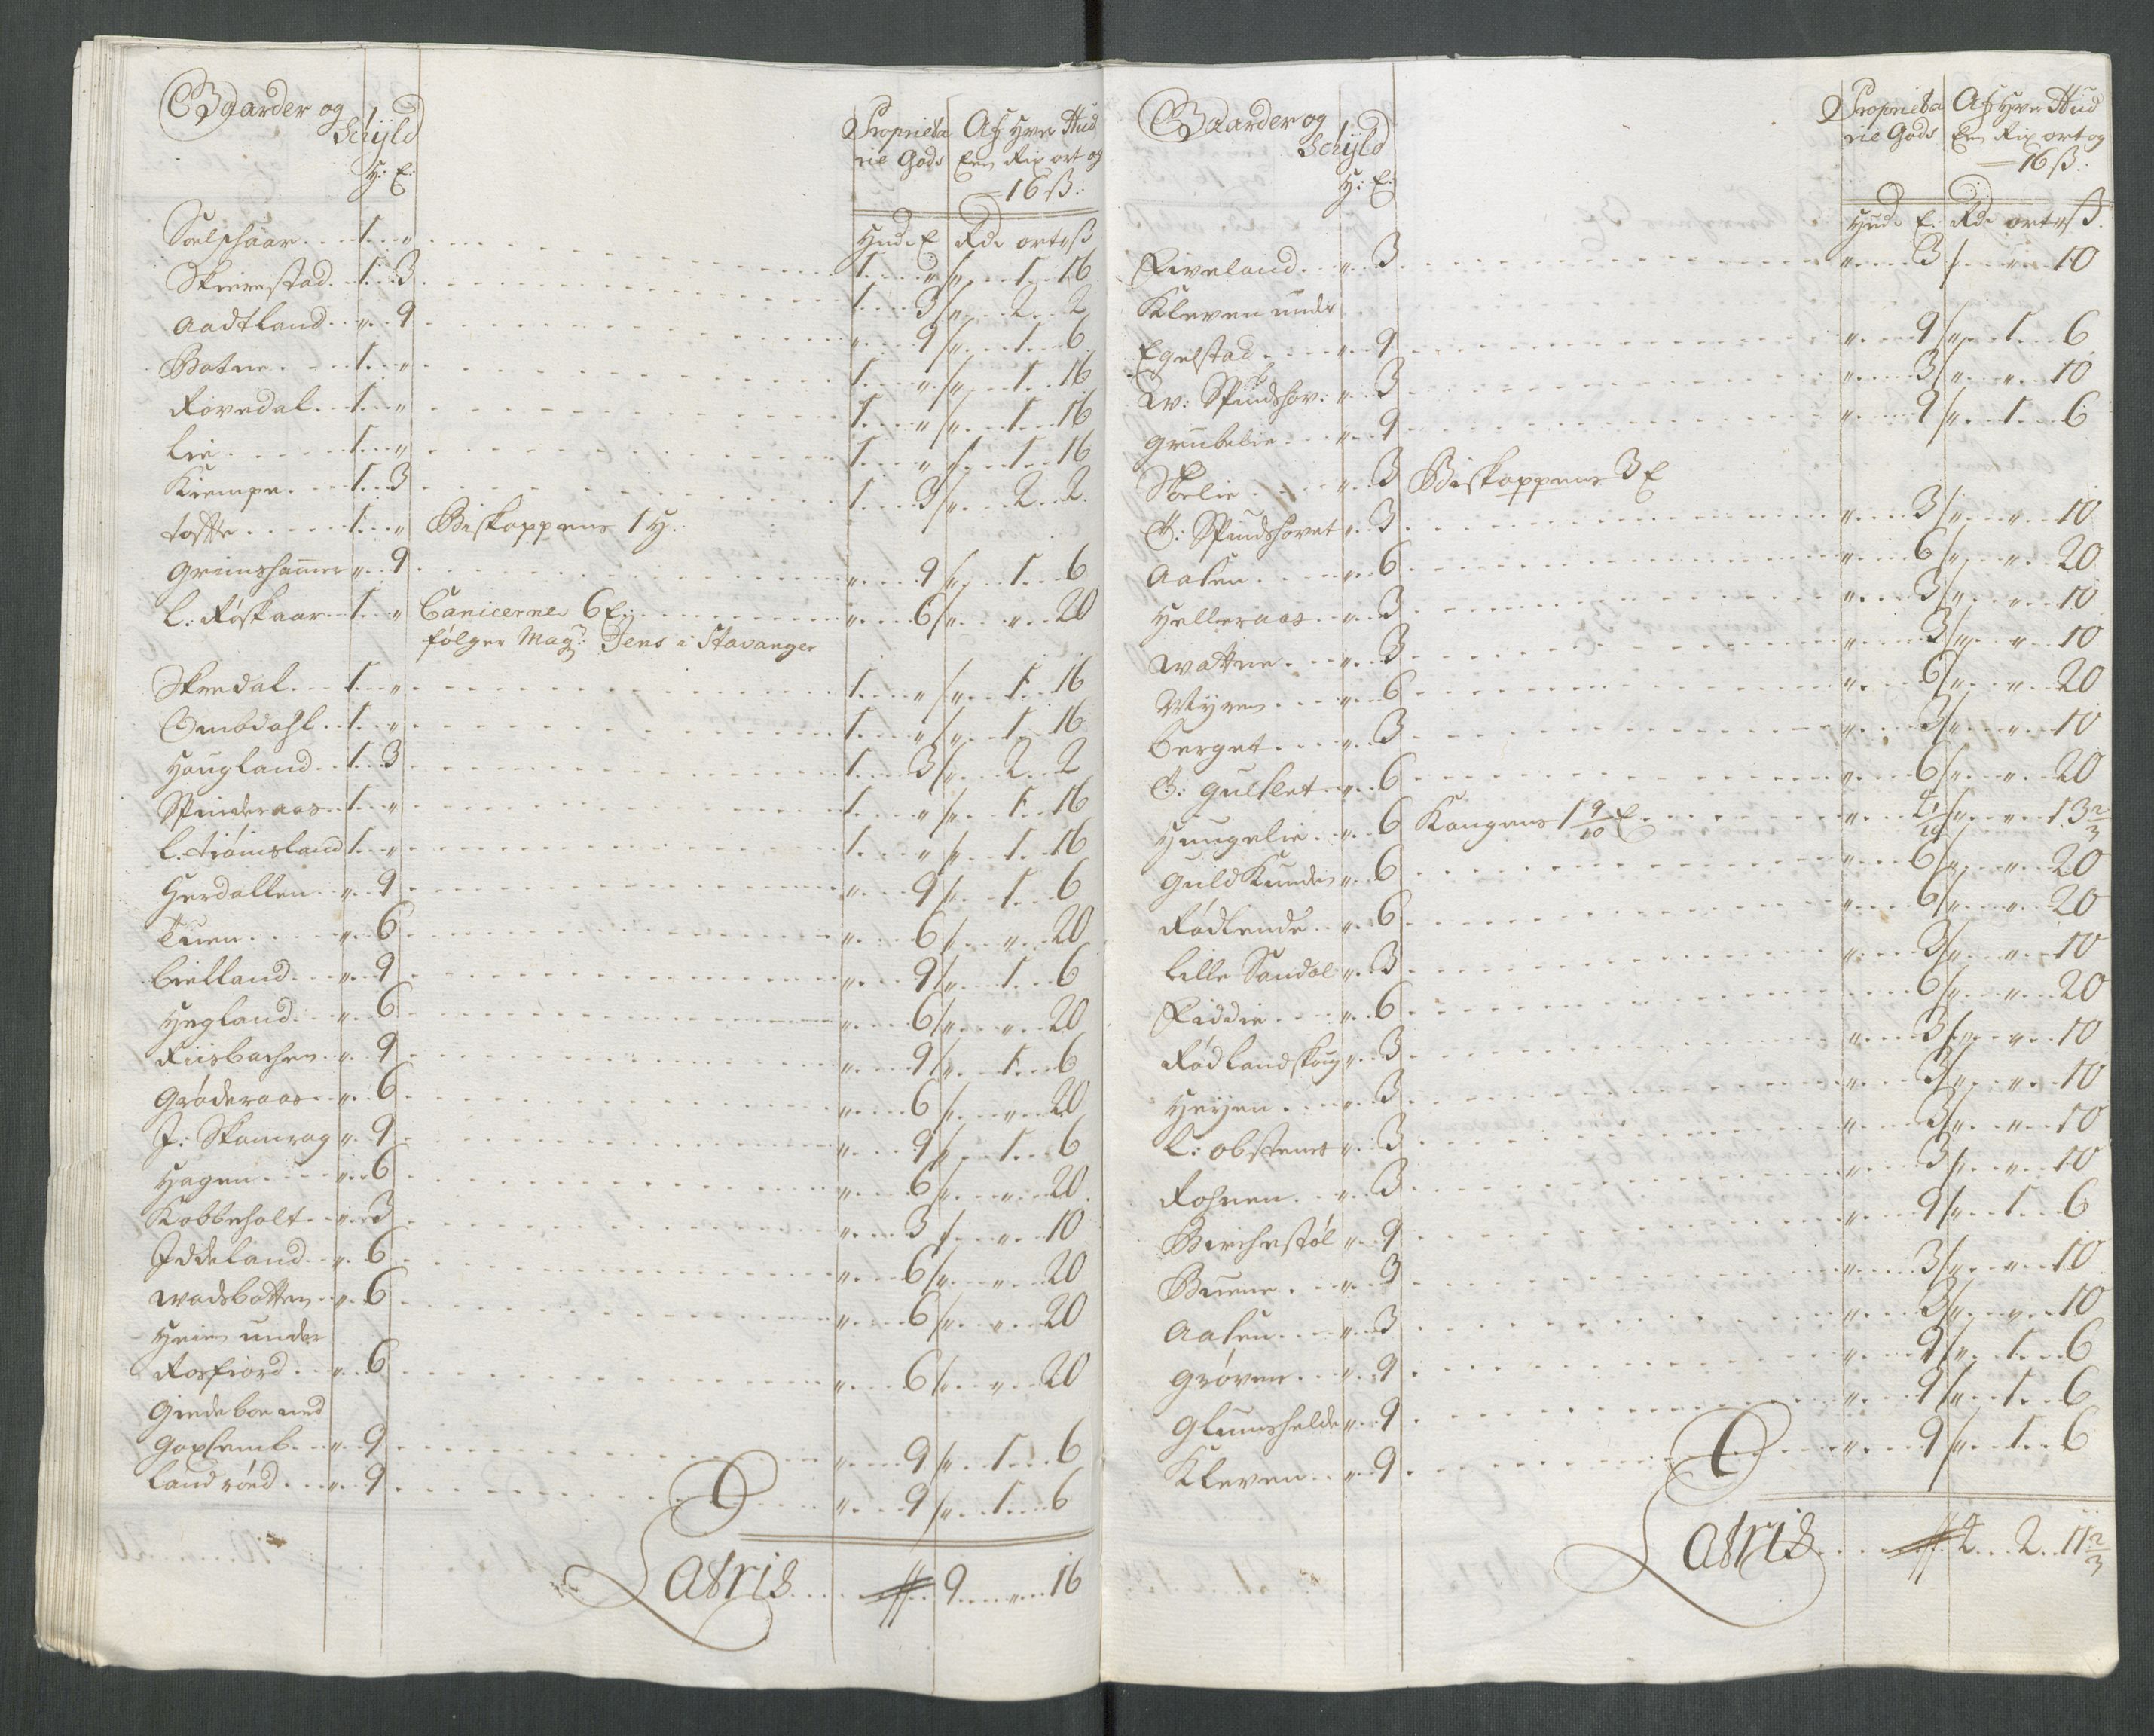 Gaarder og
Schyld
H: E:
Proprieta
rie Gods
Af hver Hud
Een Rix ort og
16 ß:
Hud: E Rd: ort ß
Soelschaar 1 " 1 " " 1 16
Skeirestad 1 3 1 3 " 2 2
Aadtland " 9 " 9 " 1 6
Botne 1 " 1 " " 1 16
Rovedal 1 " 1 " " 1 16
Lie 1 " 1 " " 1 16
Kiempe 1 3 1 3 " 2 2
tofte 1 " Biskoppens 1 H:
Grimshamer " 9 " 9 " 1 6
L: Røskaar 1 " Canicerne 6 E: " 6 " " 20
følger Magr: Jens i Stavanger
Skredal 1 " 1 " " 1 16
Ombdahl 1 " 1 " " 1 16
Hougland 1 3 1 3 " 2 2
Spinderaas 1 " 1 " " 1 16
L: tiómsland 1 " 1 " " 1 16
Herdallen " 9 " 9 " 1 6
Tuen " 6 " 6 " " 20
bielland " 9 " 9 " 1 6
Hegland " 6 " 6 " " 20
Riisbachen " 9 " 9 " 1 6
Gróderaas " 6 " 6 " " 20
J: Skamrag " 9 " 9 " 1 6
Hagen " 6 " 6 " " 20
Kobbeholt " 3 " 3 " " 10
Iddeland " 6 " 6 " " 20
Wadsbotten " 6 " 6 " " 20
Heien under
Rosfiord " 6 " 6 " " 20
Giedeboe med
Goxsemb " 9 " 9 " 1 6
Landróed " 9 " 9 " 1 6
Latris 9 " 16
Gaarder og
Schyld
H: E:
Proprieta
rie Gods
Af hver Hud
Een Rix ort og
16 ß:
Hud: E: Rd: ort ß
Eiveland " 3 " 3 " " 10
Kleven under
Egelstad " 9 " 9 " 1 6
W: Spindshov: " 3 " 3 " " 10
Grubelie " 9 " 9 " 1 6
Skelie " 3 Biskoppens 3 E
Ø: Spindshovet " 3 " 3 " " 10
Aasen " 6 " 6 " " 20
Helleraas " 3 " 3 " " 10
Wattne " 3 " 3 " " 10
Myren " 6 " 6 " " 20
berget " 3 " 3 " " 10
Ø: gulset " 6 " 6 " " 20
Hungelie " 6 Kongens 1 9/10 E " 4 1/10 " " 13 2/3
Guldkunden " 6 " 6 " " 20
Rødlende " 6 " 6 " " 20
Lille Sandal " 3 " 3 " " 10
Eiddie " 6 6 " " 20
Rødlandskoug " 3 " 3 " " 10
Heyen " 3 " 3 " " 10
L: obstened " 3 " 3 " " 10
Rohnen " 3 " 3 " " 10
Birchestøl " 9 " 9 " 1 6
Buene " 3 " 3 " " 10
Aasen " 3 " 3 " " 10
Grøven " 9 " 9 " 1 6
Glumshelde " 9 " 9 " 1 6
Kleven " 9 " 9 " 1 6
Latris 4 2 11 2/3